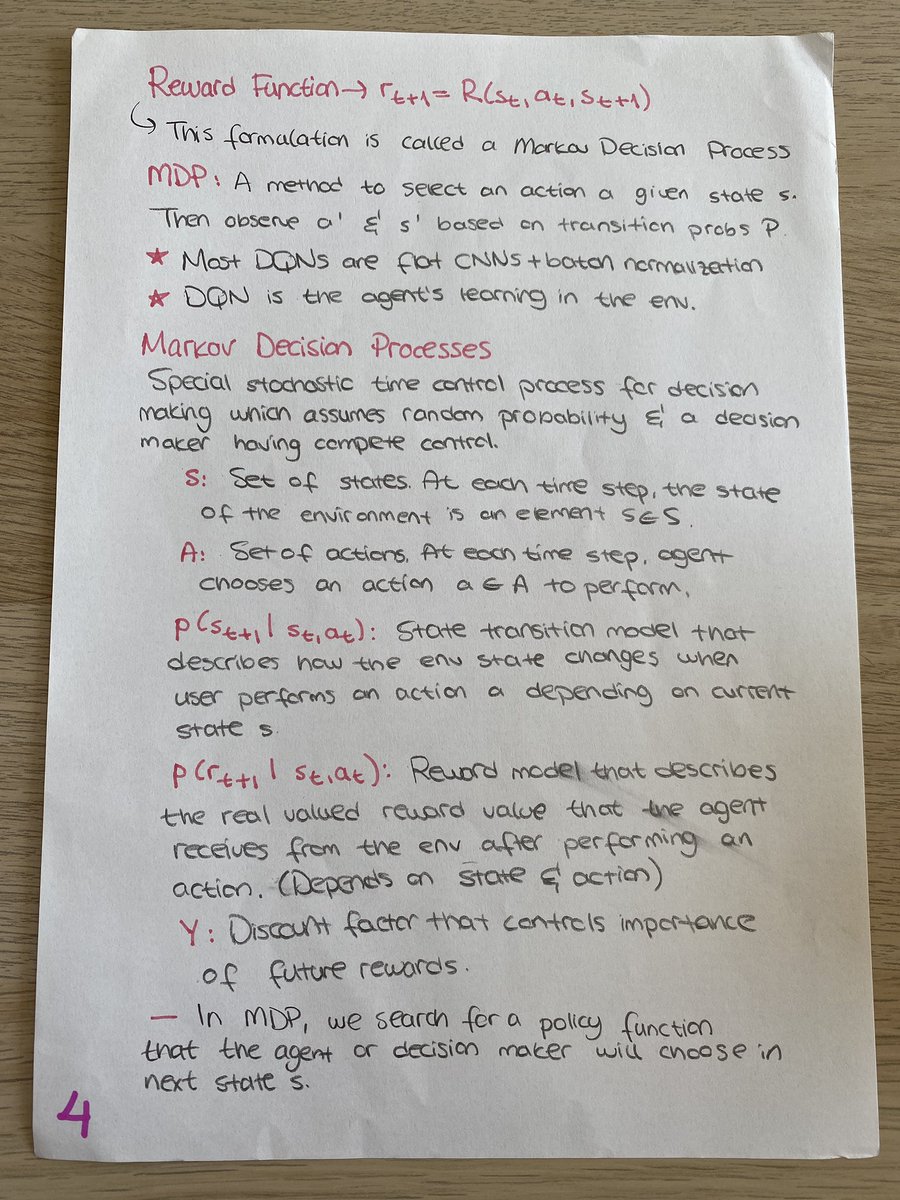 Reward Function → r_{t+1} = R(s_t, a_t, s_{t+1})
↳ This formulation is called a Markov Decision Process
MDP: A method to select an action a given state s.
Then observe a' & s' based on transition probs P.
★ Most DQNs are flat CNNs + batch normalization
★ DQN is the agent's learning in the env.
Markov Decision Processes
Special stochastic time control process for decision
making which assumes random probability & a decision
maker having compete control.
S: Set of states. At each time step, the state
of the environment is an element s∈S.
A: Set of actions. At each time step, agent
chooses an action a∈A to perform.
p(s_{t+1} | s_t, a_t): State transition model that
describes how the env state changes when
user performs an action a depending on current
state s
p(r_{t+1} | s_t, a_t): Reward model that describes
the real valued reward value that the agent
receives from the env after performing an
action. (Depends on state & action)
γ: Discount factor that controls importance
of future rewards.
— In MDP, we search for a policy function
that the agent or decision maker will choose in
next state s.
4